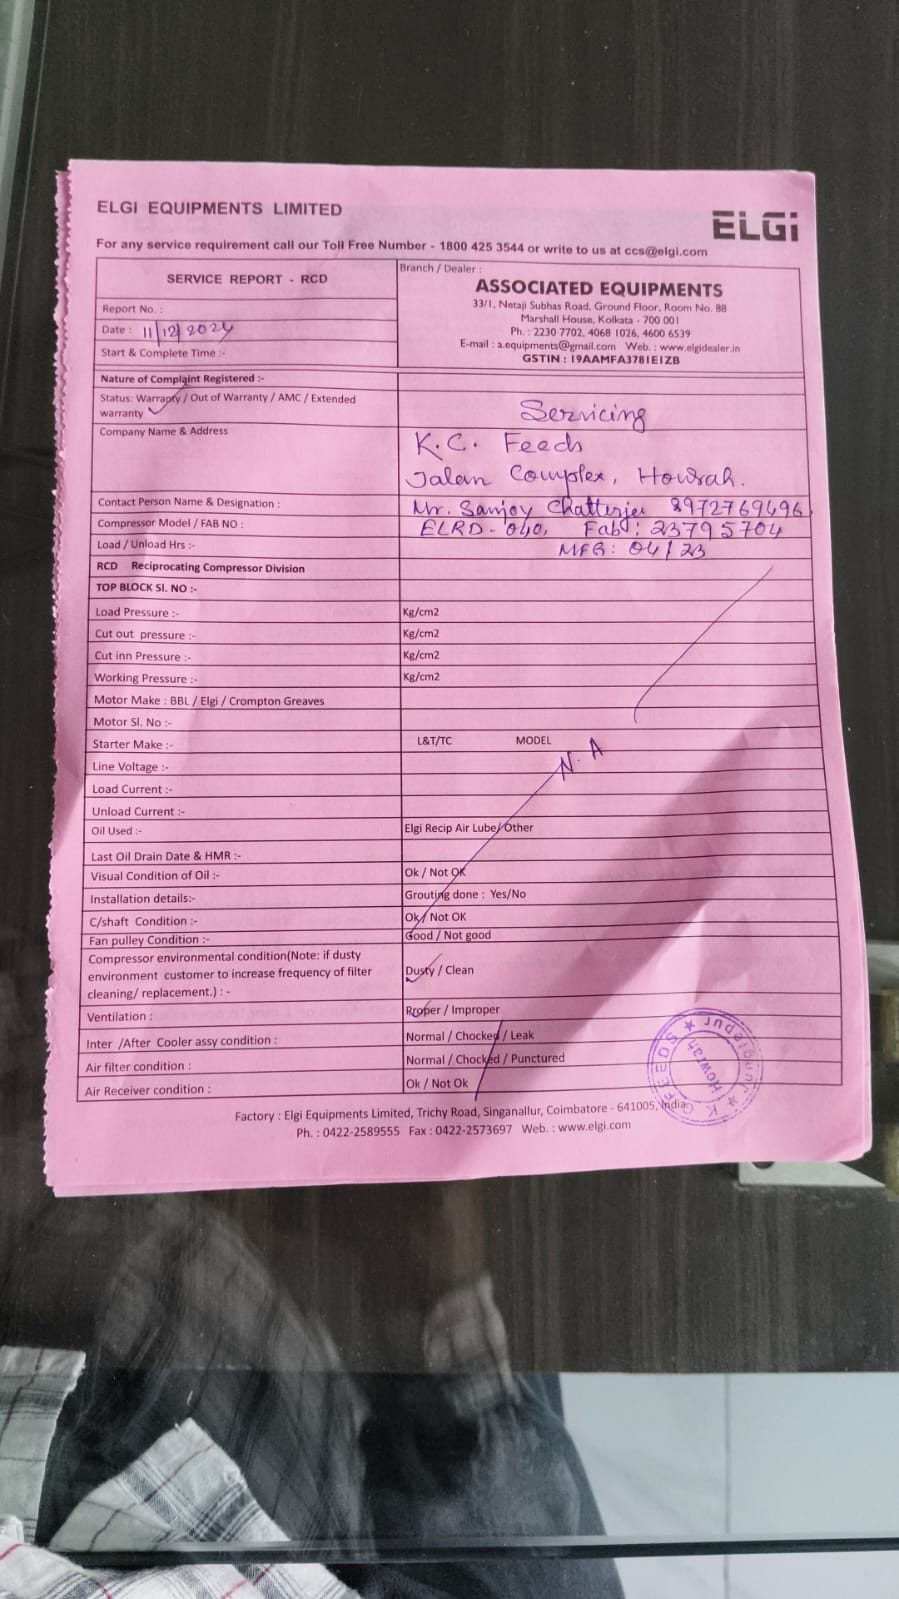 ELGI EQUIPMENTS LIMITED
ELGi
For any service requirement call our Toll Free Number - 1800 425 3544 or write to us at ccs@elgi.com
SERVICE REPORT - RCD
Report No. :
Date : 11/12/2024
Start & Complete Time :-
Branch / Dealer :
ASSOCIATED EQUIPMENTS
33/1, Netaji Subhas Road, Ground Floor, Room No. 88
Marshall House, Kolkata - 700 001
Ph. : 2230 7702, 4068 1026, 4600 6539
E-mail : a.equipments@gmail.com Web. : www.elgidealer.in
GSTIN : 19AAMFA3781E1ZB
Nature of Complaint Registered :-
Status: Warranty / Out of Warranty / AMC / Extended
warranty
Servicing
Company Name & Address
K.C. Feeds
Jalan Complex, Howrah.
Contact Person Name & Designation : Mr. Sanjoy Chatterjee 8972769696
Compressor Model / FAB NO : ELRD-040, Fab: 23795704
Load / Unload Hrs :- MFG: 04/23
RCD Reciprocating Compressor Division
TOP BLOCK SI. NO :-
Load Pressure :- Kg/cm2
Cut out pressure :- Kg/cm2
Cut inn Pressure :- Kg/cm2
Working Pressure :- Kg/cm2
Motor Make : BBL / Elgi / Crompton Greaves
Motor Sl. No :-
Starter Make :- L&T/TC MODEL
N.A
Line Voltage :-
Load Current :-
Unload Current :-
Oil Used :- Elgi Recip Air Lube/ Other
Last Oil Drain Date & HMR :-
Visual Condition of Oil :- Ok / Not OK
Installation details:- Grouting done : Yes/No
C/shaft Condition :- Ok / Not OK
Fan pulley Condition :- Good / Not good
Compressor environmental condition(Note: if dusty
environment customer to increase frequency of filter
cleaning/ replacement.) : -
Dusty / Clean
Ventilation : Proper / Improper
Inter /After Cooler assy condition : Normal / Chocked / Leak
Air filter condition : Normal / Chocked / Punctured
Air Receiver condition : Ok / Not Ok
FEEDS ★ Jungalpur ★ K
Howrah
Factory : Elgi Equipments Limited, Trichy Road, Singanallur, Coimbatore - 641005, India.
Ph. : 0422-2589555 Fax : 0422-2573697 Web. : www.elgi.com